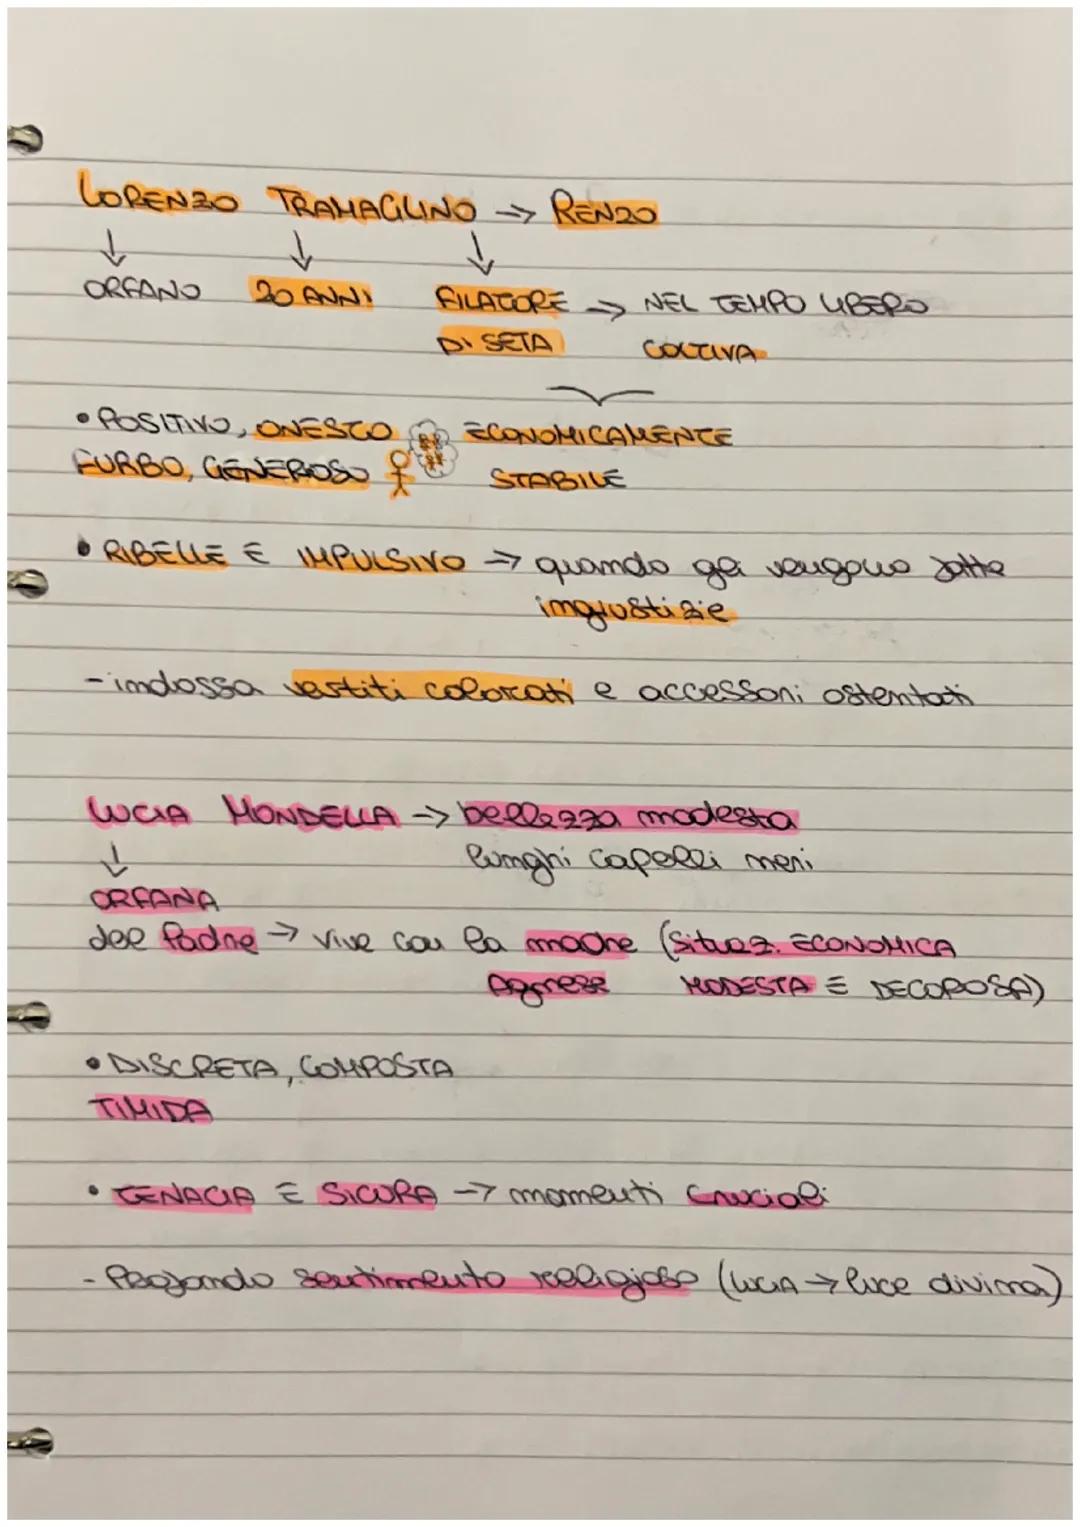 LORENZO TRAMAGLINO → RENZO
↓ ↓ ↓
ORFANO 20 ANNI FILATORE → NEL TEMPO LIBERO
DI SETA COLTIVA
• POSITIVO, ONESTO ECONOMICAMENTE
FURBO, GENEROSO STABILE
• RIBELLE E IMPULSIVO → quando gli vengono fatte
ingiustizie
- indossa vestiti colorati e accessori ostentati
LUCIA MONDELLA → bellezza modesta
↓ lunghi capelli neri
ORFANA
del Padre → vive con la madre (situaz. ECONOMICA
Agnese MODESTA E DECOROSA)
• DISCRETA, COMPOSTA
TIMIDA
• TENACIA E SICURA → momenti cruciali
- Profondo sentimento religioso (LUCIA → luce divina)